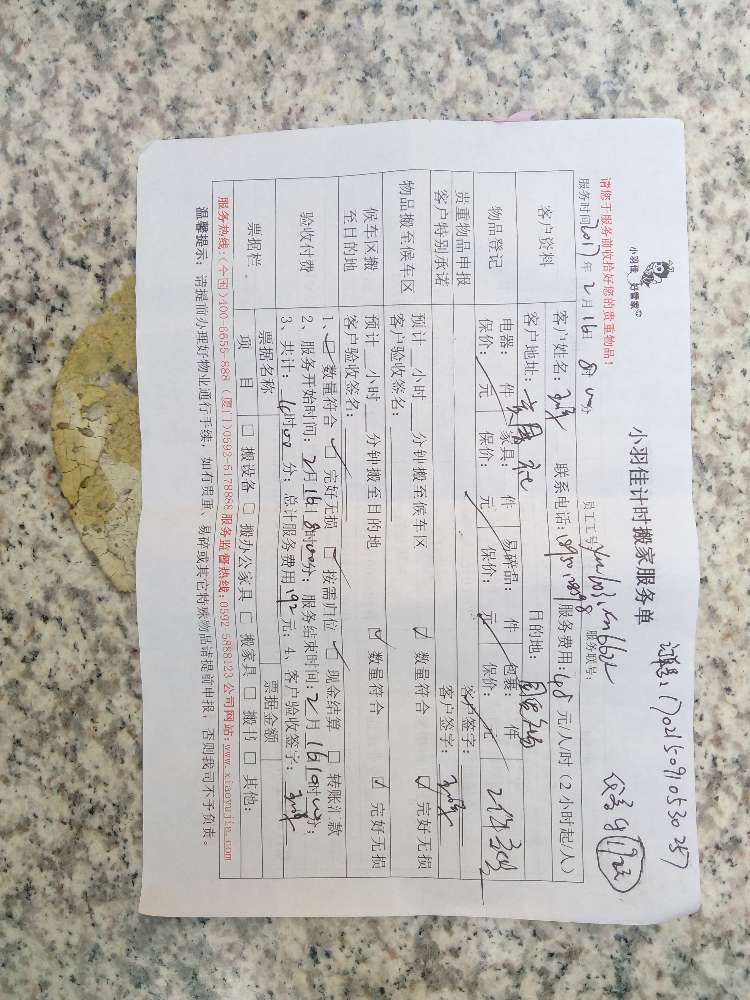 小羽佳 好管家
小羽佳计时搬家服务单
请您于服务前收拾好您的贵重物品!
服务时间2017年2月16日8时00分 员工工号: 服务账号:
客户资料
客户姓名: 联系电话: 服务费用:48元/人/时(2小时起/人)
客户地址: 目的地:
物品登记
电器: 件 家具: 件 易碎品: 件 包裹: 件
保价: 元 保价: 元 保价: 元 保价: 元
贵重物品申报 客户签字:
客户特别承诺 客户签字:
物品搬至候车区
预计__小时__分钟搬至候车区 ☑ 数量符合 ☑ 完好无损
客户验收签名:
候车区搬至目的地
预计__小时__分钟搬至目的地 ☑ 数量符合 ☑ 完好无损
客户验收签名:
验收付费
1、☑ 数量符合 ☑ 完好无损 ☑ 按需归位 ☑ 现金结算 □ 转账汇款
2、服务开始时间:2月16日8时00分;服务结束时间:2月16日 时00分;
3、共计: 时00分;总计服务费用192元;4、客户验收签字:
票据栏
票据名称 票据金额
项 目 □ 搬设备 □ 搬办公家具 □ 搬家具 □ 搬书 □ 其他:
服务热线:(全国)400-6656-888 (厦门)0592-5178888 服务监督热线:0592-5888123 公司网站:www.xiaoyujia.com
温馨提示:请提前办理好物业通行手续,如有贵重、易碎或其它特殊物品请提前申报,否则我司不予负责。